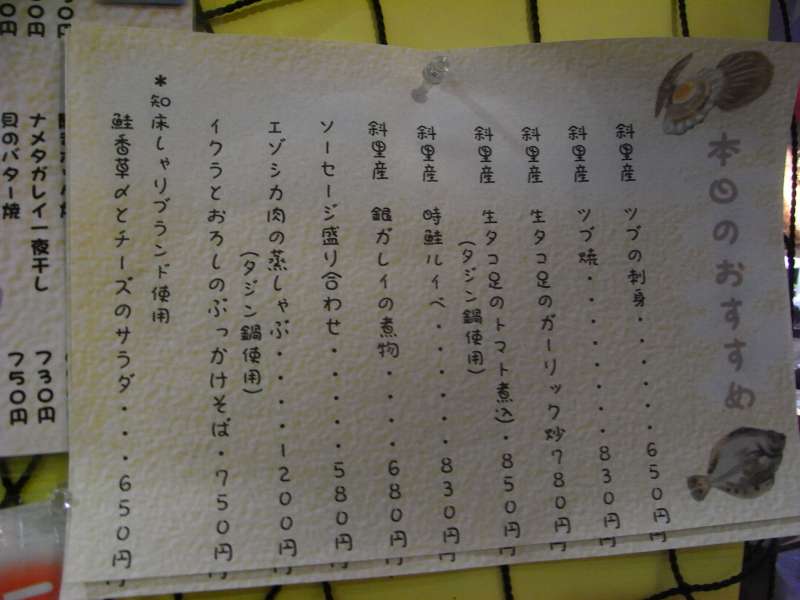 本日のおすすめ
斜里産 ツブの刺身・・・・・・650円
斜里産 ツブ焼・・・・・・・・830円
斜里産 生タコ足のガーリック炒780円
斜里産 生タコ足のトマト煮込・850円
(タジン鍋使用)
斜里産 時鮭ルイベ・・・・・・830円
斜里産 銀ガレイの煮物・・・・680円
ソーセージ盛り合わせ・・・・・580円
エゾシカ肉の蒸しゃぶ・・・・・1200円
(タジン鍋使用)
イクラとおろしのぶっかけそば・750円
*知床しゃりブランド使用
鮭香草〆とチーズのサラダ・・・650円
ナメタガレイ一夜干し 730円
貝のバター焼 750円